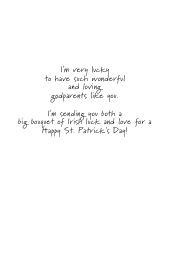 I'm very lucky
to have such wonderful
and loving
godparents like you.
I'm sending you both a
big bouquet of Irish luck and love for a
Happy St. Patrick's Day!